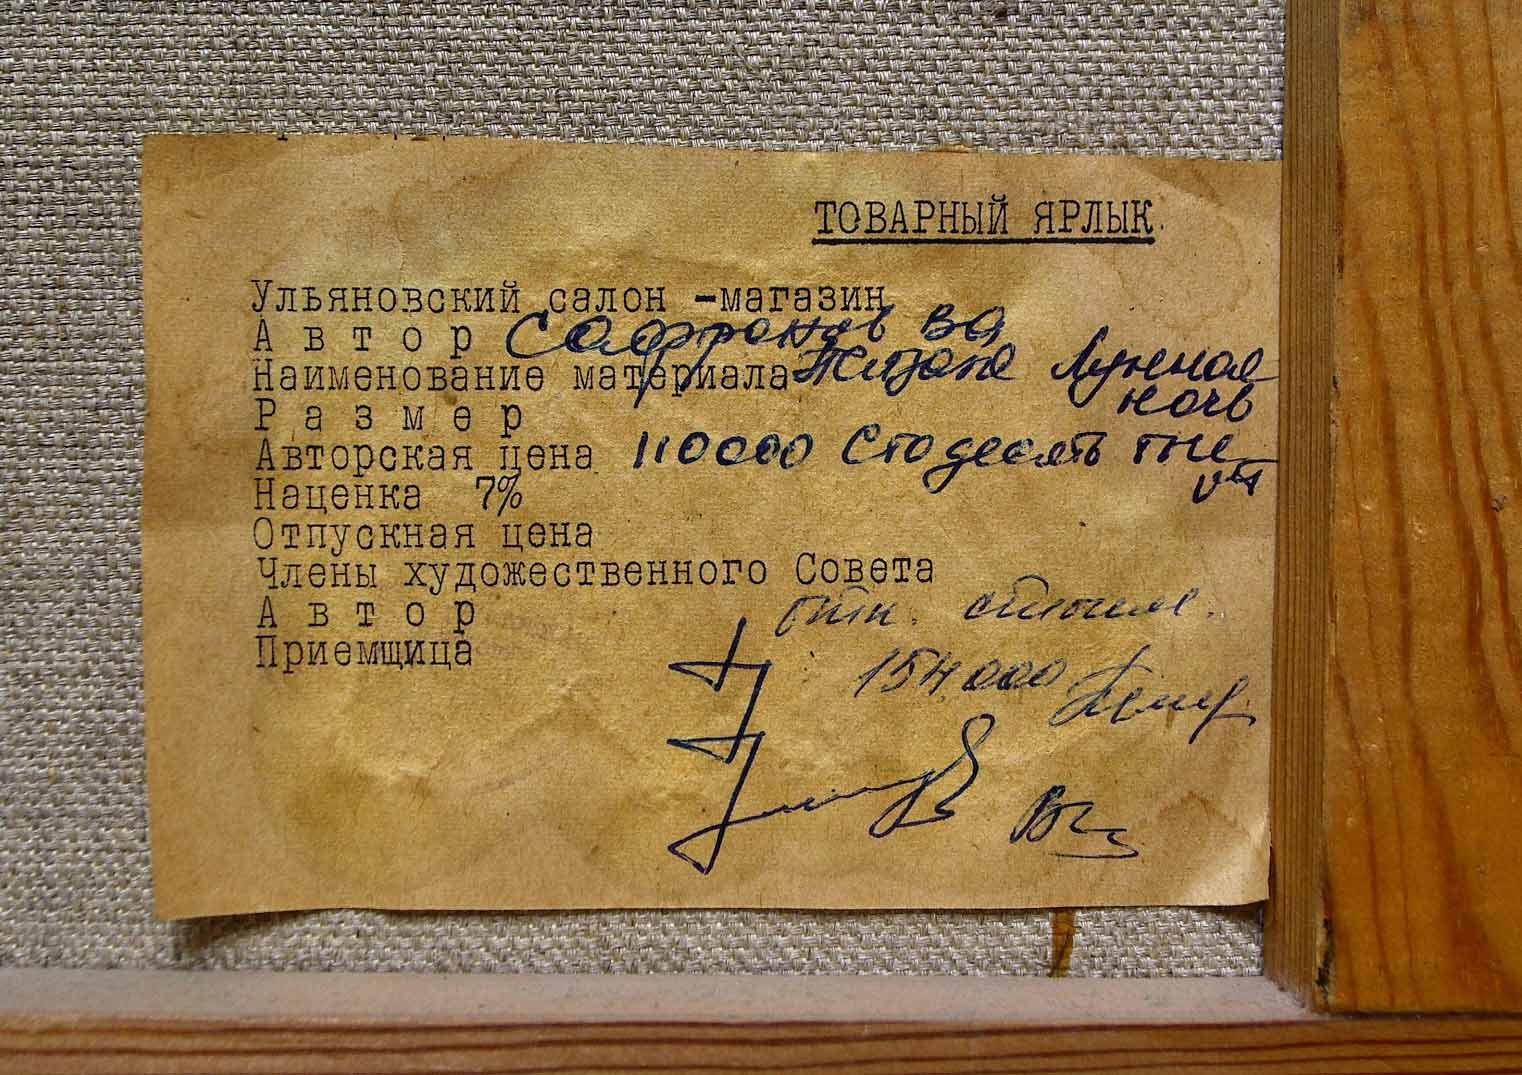 ТОВАРНЫЙ ЯРЛЫК
Ульяновский салон -магазин
Автор Сафронов ВА
Наименование материала Лунная
ночь
Размер
Авторская цена 110000 Сто десять
Наценка 7%
Отпускная цена
Члены художественного Совета
Автор
Приемщица
154000